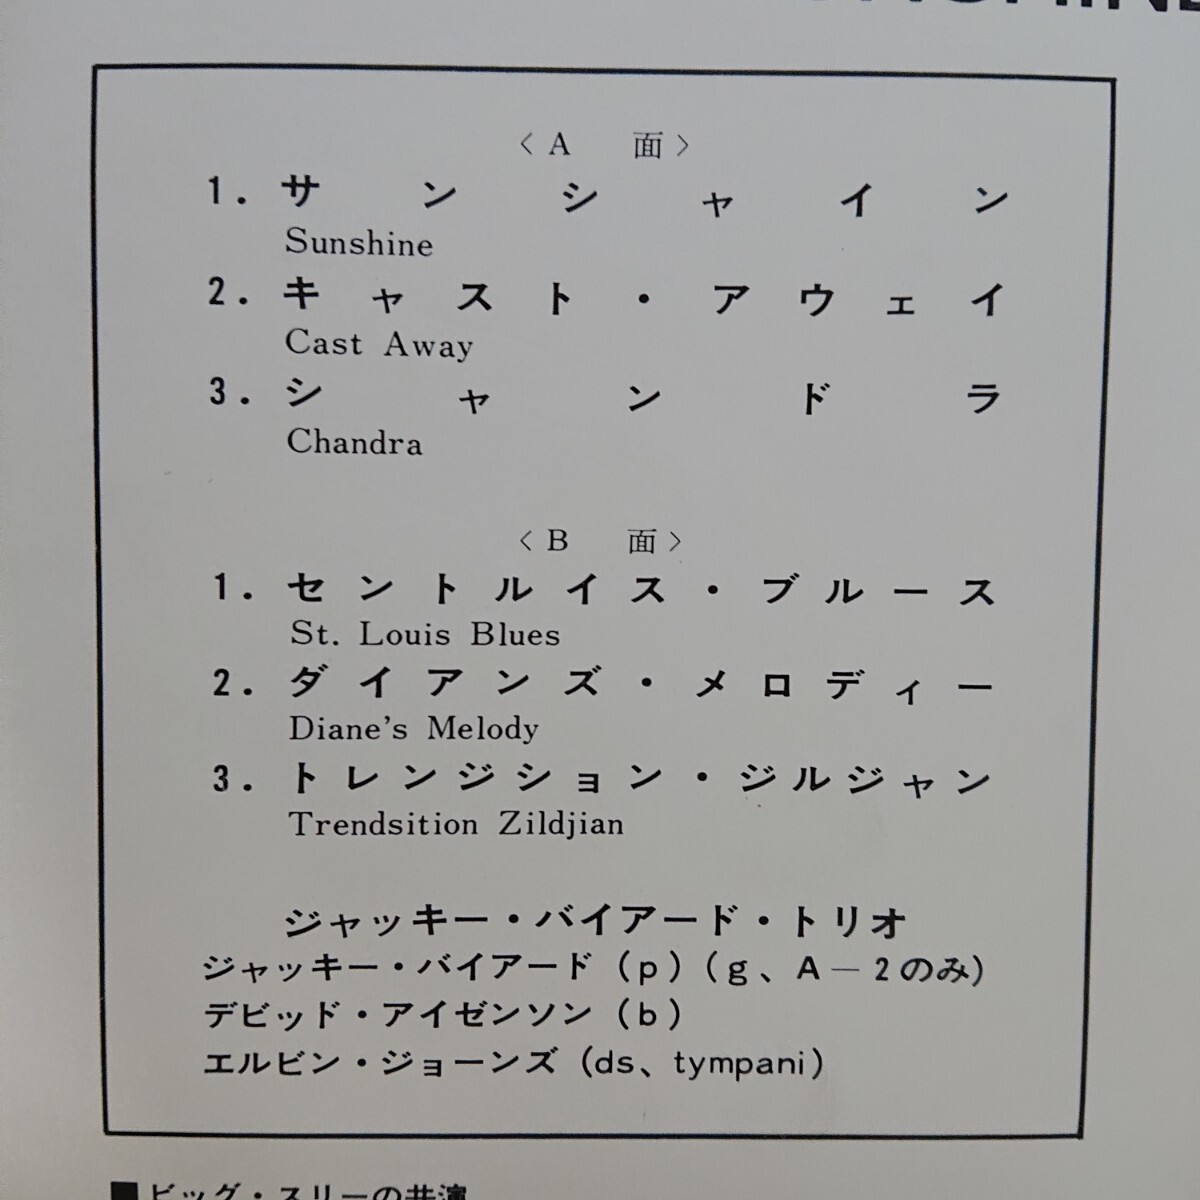 〈A 面〉
1. サンシャイン
Sunshine
2. キャスト・アウェイ
Cast Away
3. シャンドラ
Chandra
〈B 面〉
1. セントルイス・ブルース
St. Louis Blues
2. ダイアンズ・メロディー
Diane's Melody
3. トレンジション・ジルジャン
Trendsition Zildjian
ジャッキー・バイアード・トリオ
ジャッキー・バイアード(p)(g、A―2のみ)
デビッド・アイゼンソン(b)
エルビン・ジョーンズ(ds、tympani)
■ビッグ・スリーの共演